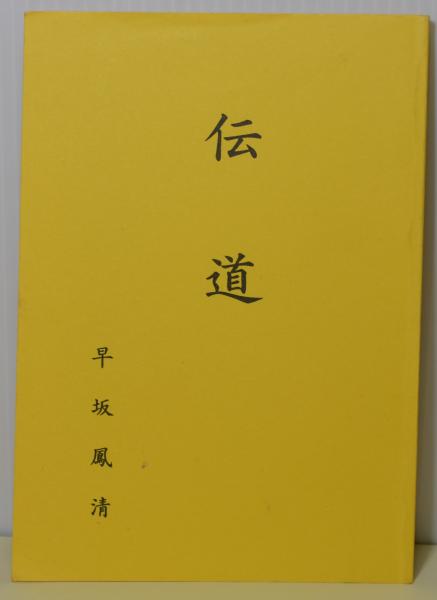 伝道
早坂鳳清